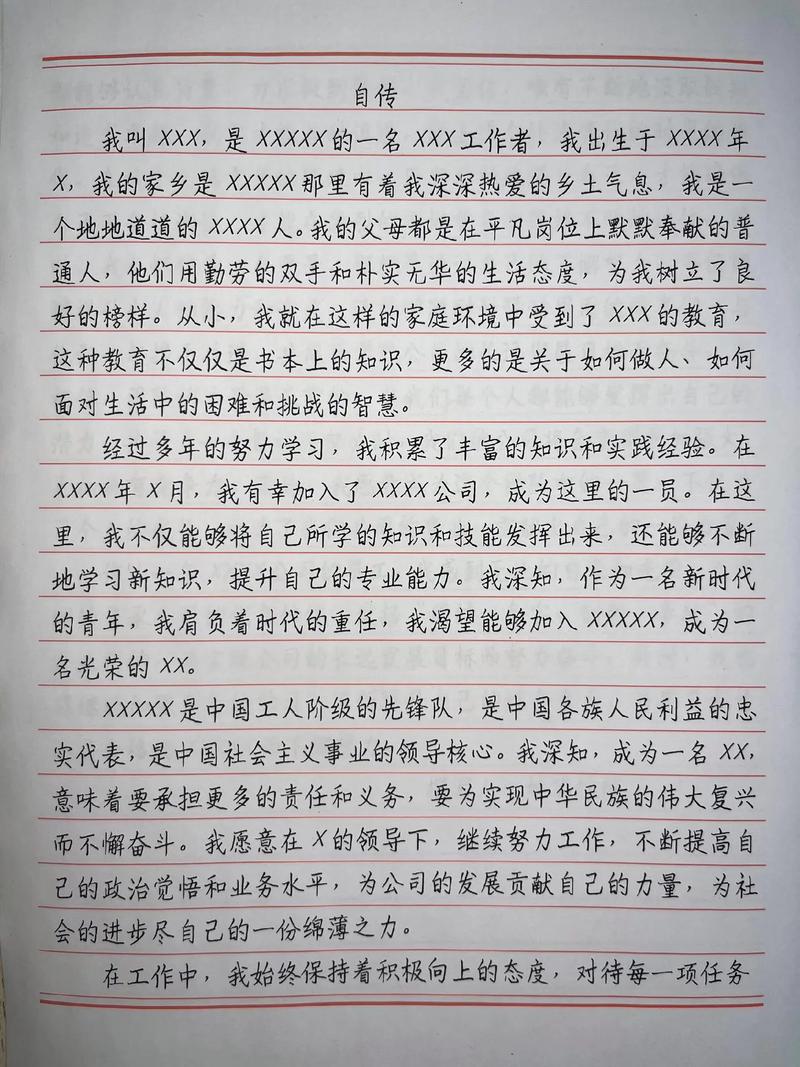 自传
我叫 XXX，是 XXXXX 的一名 XXX 工作者，我出生于 XXXX 年
X，我的家乡是 XXXXX 那里有着我深深热爱的乡土气息，我是一
个地地道道的 XXXX 人。我的父母都是在平凡岗位上默默奉献的普
通人，他们用勤劳的双手和朴实无华的生活态度，为我树立了良
好的榜样。从小，我就在这样的家庭环境中受到了 XXX 的教育，
这种教育不仅仅是书本上的知识，更多的是关于如何做人、如何
面对生活中的困难和挑战的智慧。
经过多年的努力学习，我积累了丰富的知识和实践经验。在
XXXX 年 X 月，我有幸加入了 XXXX 公司，成为这里的一员。在这
里，我不仅能够将自己所学的知识和技能发挥出来，还能够不断
地学习新知识，提升自己的专业能力。我深知，作为一名新时代
的青年，我肩负着时代的重任，我渴望能够加入 XXXXX，成为一
名光荣的 XX。
XXXXX 是中国工人阶级的先锋队，是中国各族人民利益的忠
实代表，是中国社会主义事业的领导核心。我深知，成为一名 XX，
意味着要承担更多的责任和义务，要为实现中华民族的伟大复兴
而不懈奋斗。我愿意在 X 的领导下，继续努力工作，不断提高自
己的政治觉悟和业务水平，为公司的发展贡献自己的力量，为社
会的进步尽自己的一份绵薄之力。
在工作中，我始终保持着积极向上的态度，对待每一项任务